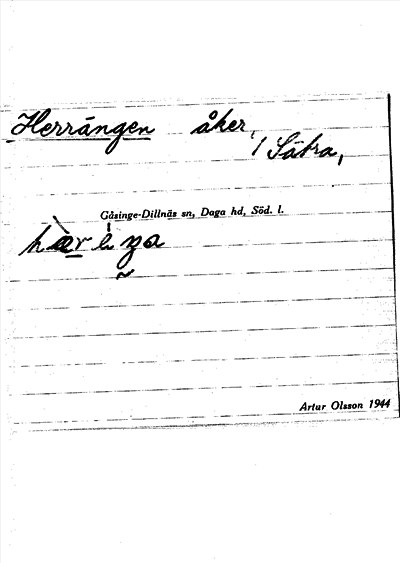 Herrängen åker,
/ Sätra,
Gåsinge-Dillnäs sn, Daga hd, Söd. l.
Artur Olsson 1944